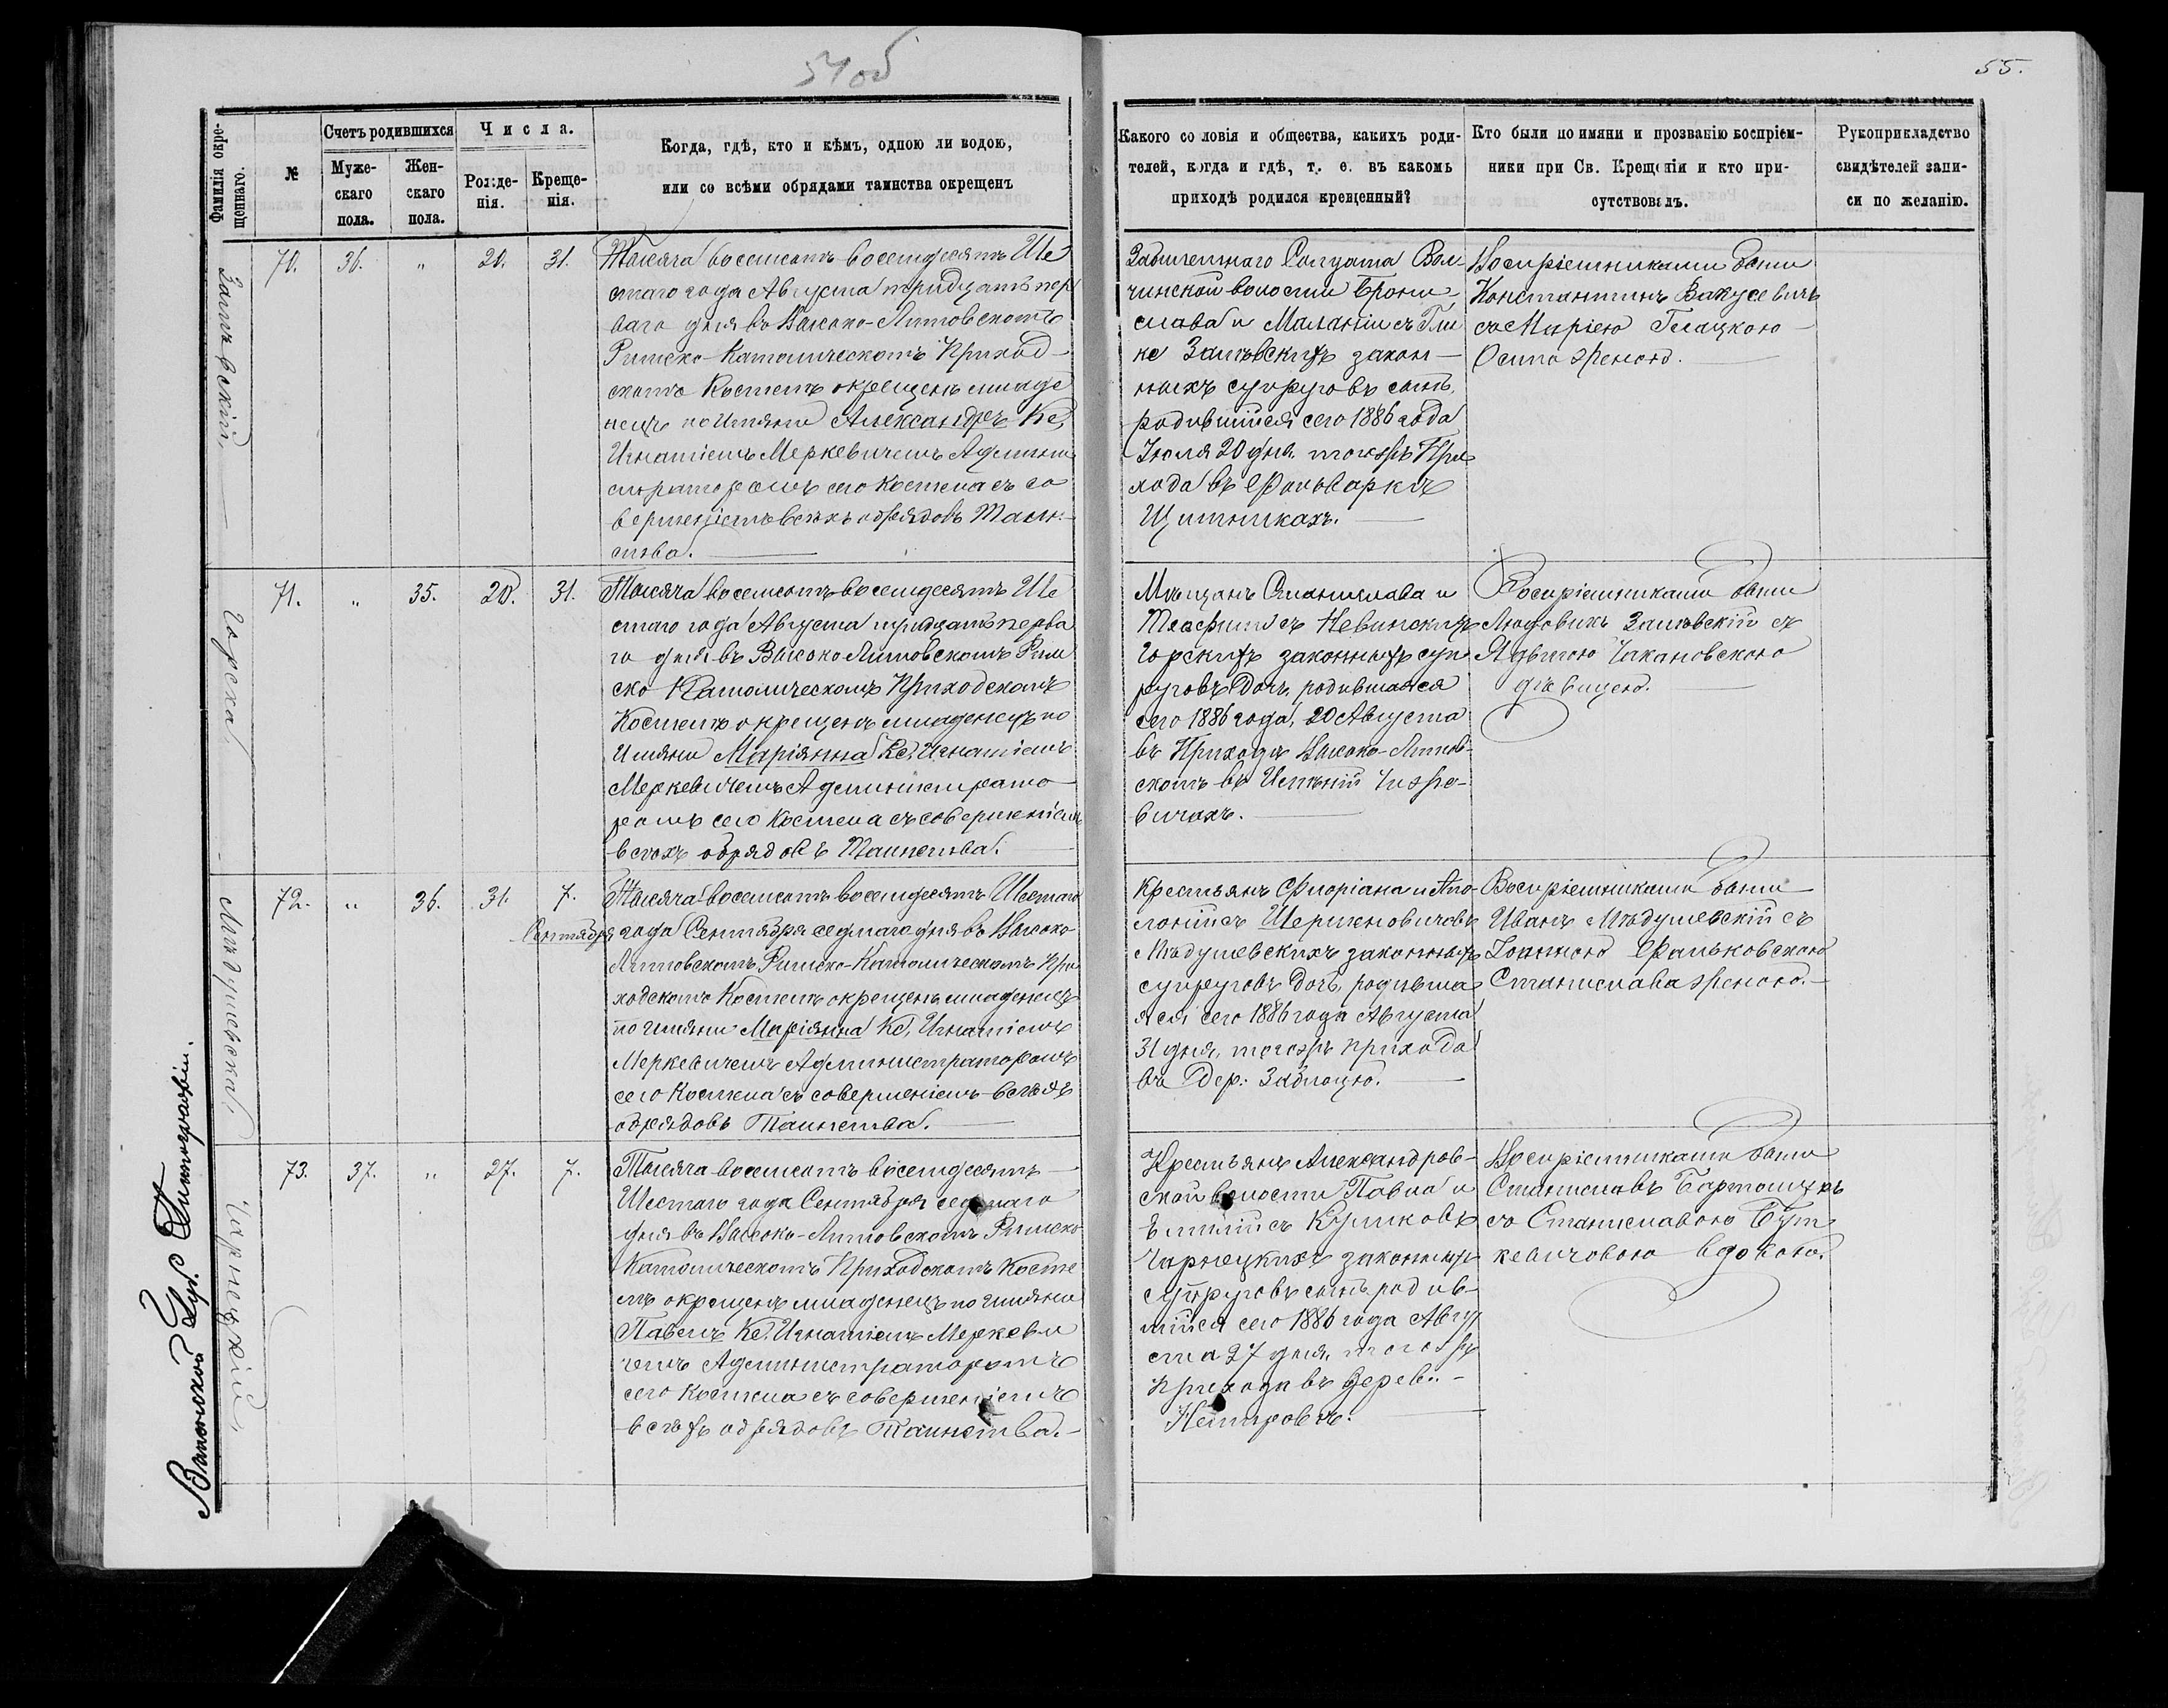 54 об
55.
Фамилія окре-
щеннаго.
№
Счетъ родившихся
Муже-
скаго
пола.
Жен-
скаго
пола.
Числа.
Рожде-
нія.
Креще-
нія.
Когда, гдѣ, кто и кѣмъ, одною ли водою,
или со всѣми обрядами таинства окрещенъ
Какого сословія и общества, какихъ роди-
телей, когда и гдѣ, т. е. въ какомъ
приходѣ родился крещенный?
Кто были по имяни и прозванію воспріем-
ники при Св. Крещеніи и кто при-
сутствовалъ.
Рукоприкладство
свидѣтелей запи-
си по желанію.
70.
36.
"
20.
31.
Тысяча восемсотъ восемдесятъ Ше
стаго года Августа тридцать пер
ваго дня въ Высоко-Литовскомъ
Римско-Католическомъ Приход-
скомъ Костелѣ окрещенъ младе
нецъ по Имяни Александръ Кс.
Игнатіемъ Меркевичемъ Админи
страторомъ сего Костела съ со
вершеніемъ всѣхъ обрядовъ Таин-
ства.
Забилетнаго Солдата Вол-
чинской волости Брони-
слава и Маланіи съ Гли
нс Залѣвскихъ закон-
ныхъ супруговъ сынъ,
родившійся сего 1886 года
Іюля 20 дня. тогожъ При
хода въ Фольваркѣ
Щитникахъ.
Воспріемниками были
Константинъ Вакусевичъ
съ Маріею
Осипа женою.
71.
"
35.
20.
31.
Горская
Тысяча восемсотъ восемдесятъ Ше
стаго года Августа тридцать перва
го дня въ Высоко Литовскомъ Рим
ско Католическомъ Приходскомъ
Костелѣ окрещенъ младенецъ по
Имяни Маріянна Кс. Игнатіемъ
Меркевичемъ Администрато
ромъ сего Костела съ совершеніемъ
всѣхъ обрядовъ Таинства.
Мѣщанъ Станислава и
Теофили съ Невинскихъ
Горскихъ законныхъ суп
руговъ Дочь, родившаяся
сего 1886 года, 20 Августа
въ Приходѣ Высоко-Литов-
скомъ въ Имѣніи
вичахъ.
Воспріемниками были
Людовикъ Залѣвскій съ
Ядвигою Чакановскою
дѣвицею.
72.
"
36.
31.
7.
Сентября
Мѣдушевская
Тысяча восемсотъ восемдесятъ Шестаго
года Сентября седмаго дня въ Высоко-
Литовскомъ Римско-Католическомъ При
ходскомъ Костелѣ окрещенъ младенецъ
по имяни Маріянна Кс. Игнатіемъ
Меркевичемъ Администраторомъ
сего Костела съ совершеніемъ всѣхъ
обрядовъ Таинства.
Крестьянъ Флоріана и Апо-
лоніи съ Шершеновичовъ
Мѣдушевскихъ законныхъ
супруговъ Дочь, родивша
яся сего 1886 года Августа
31 дня, тогожъ прихода
въ Дер: Заблоцю.
Воспріемниками были
Иванъ Мѣдушевскій съ
Іоанною Фальковскою
Станислава женою.
73.
37.
"
27.
7.
Чарнецкій
Тысяча восемсотъ восемдесятъ
Шестаго года Сентября седмаго
дня въ Высоко-Литовскомъ Римско
Католическомъ Приходскомъ Косте
лѣ окрещенъ младенецъ по имяни
Павелъ Кс. Игнатіемъ Меркеви
чемъ Администраторомъ
сего Костела съ совершеніемъ
всѣхъ обрядовъ Таинства.
Крестьянъ Александров-
ской волости Павла и
Емиліи съ Куликовъ
Чарнецкихъ законныхъ
супруговъ сынъ, родив-
шійся сего 1886 года Авгу
ста 27 дня, тогожъ
прихода въ Дерев.
Воспріемниками были
Станиславъ Бартошукъ
съ Станиславою Бут
кевичовою вдовою.
Залѣвскій
Виленской Губ. Типографіи.